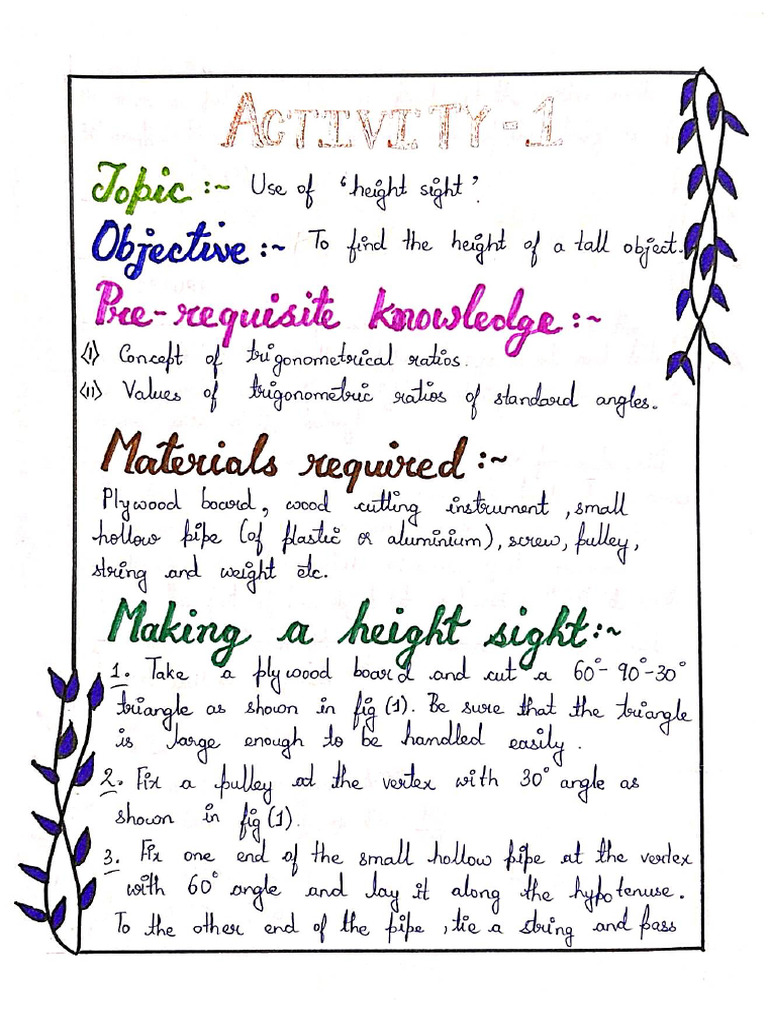 ACTIVITY-1
Topic :~ Use of 'height sight'.
Objective :~ To find the height of a tall object.
Pre-requisite knowledge :~
(I) Concept of trigonometrical ratios.
(II) Values of trigonometric ratios of standard angles.
Materials required :~
Plywood board, wood cutting instrument, small
hollow pipe (of plastic or aluminium), screw, pulley,
string and weight etc.
Making a height sight :~
1. Take a plywood board and cut a 60°-90°-30°
triangle as shown in fig (1). Be sure that the triangle
is large enough to be handled easily.
2. Fix a pulley at the vertex with 30° angle as
shown in fig (1).
3. Fix one end of the small hollow pipe at the vertex
with 60° angle and lay it along the hypotenuse.
To the other end of the pipe, tie a string and pass